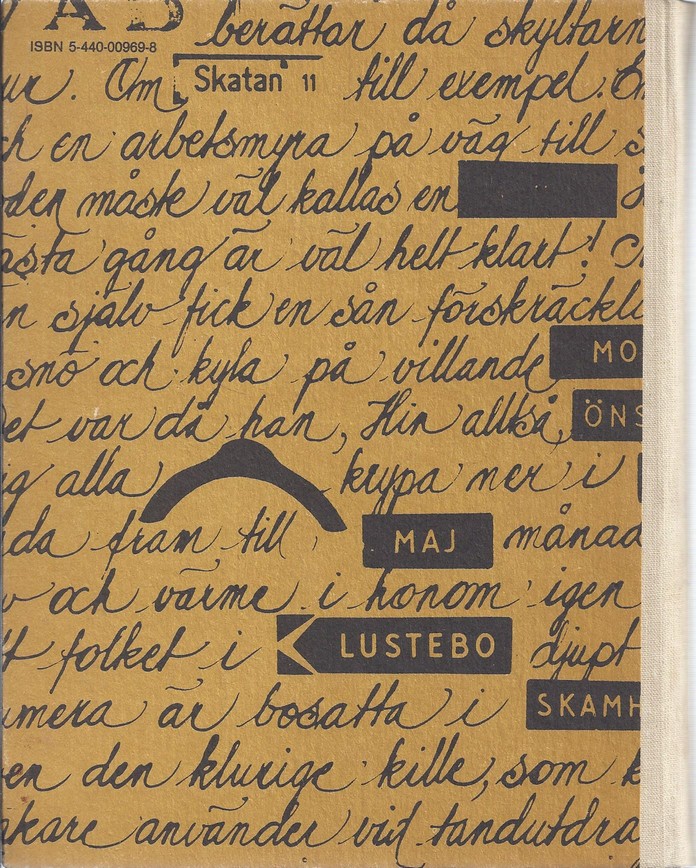 AB berättar då skyltarn
ISBN 5-440-00969-8
ur. Om Skatan 11 till exempel. En
ch en arbetsmyra på väg till s
oden måste väl kallas en
ästa gång är väl helt klart!
n själv fick en sån förskräckli
snö och kyla på villande MO
et var då han, Hin alltså, ÖNS
ig alla krypa ner i
da fram till MAJ månad
v och värme i honom igen
t folket i LUSTEBO djupt
mera är bosatta i SKAMH
en den klurige kille, som k
kare använder vid tandutdra